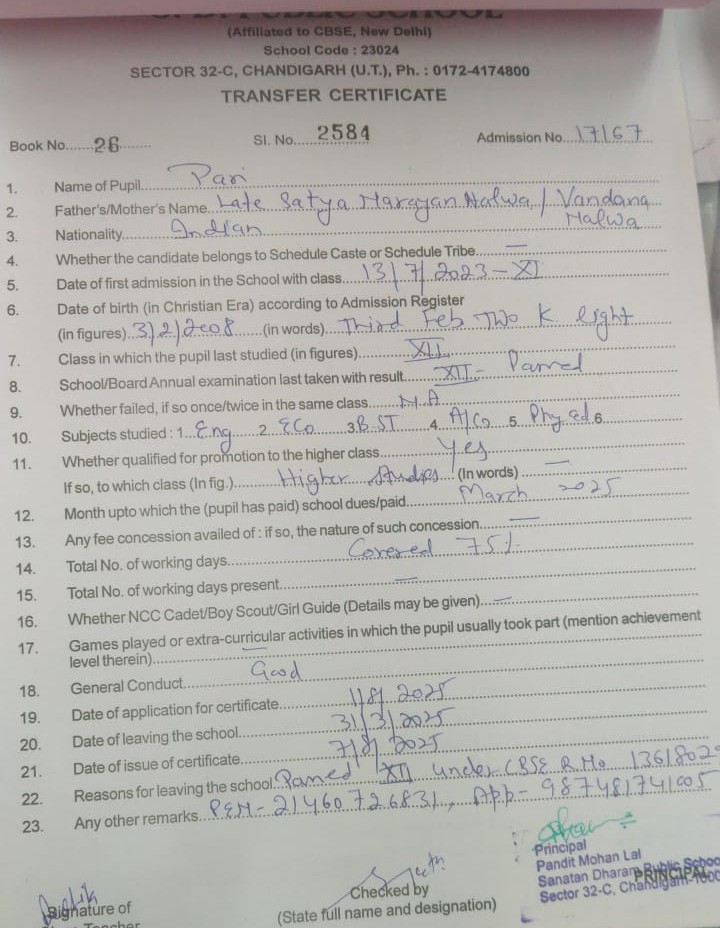 S. D. PUBLIC SCHOOL
(Affiliated to CBSE, New Delhi)
School Code : 23024
SECTOR 32-C, CHANDIGARH (U.T.), Ph. : 0172-4174800
TRANSFER CERTIFICATE
Book No. 26 Sl. No. 2584 Admission No. 17167
1. Name of Pupil Pari
2. Father's/Mother's Name Late Satya Narayan Halwa / Vandana Halwa
3. Nationality Indian
4. Whether the candidate belongs to Schedule Caste or Schedule Tribe —
5. Date of first admission in the School with class 13/7/2023 - XI
6. Date of birth (in Christian Era) according to Admission Register
(in figures) 3/2/2008 (in words) Third Feb Two K eight
7. Class in which the pupil last studied (in figures) XII
8. School/Board Annual examination last taken with result XII - Passed
9. Whether failed, if so once/twice in the same class N.A
10. Subjects studied : 1 Eng 2 ECo 3 B.ST 4 A/Co 5 Phy ed 6
11. Whether qualified for promotion to the higher class Yes
If so, to which class (In fig.) Higher Studies (In words) —
12. Month upto which the (pupil has paid) school dues/paid March 2025
13. Any fee concession availed of : if so, the nature of such concession —
14. Total No. of working days Covered 75%
15. Total No. of working days present —
16. Whether NCC Cadet/Boy Scout/Girl Guide (Details may be given) —
17. Games played or extra-curricular activities in which the pupil usually took part (mention achievement
level therein) —
18. General Conduct Good
19. Date of application for certificate 1/8/2025
20. Date of leaving the school 31/3/2025
21. Date of issue of certificate 7/8/2025
22. Reasons for leaving the school Passed XII under CBSE R.No 1361802
23. Any other remarks PEN - 21460726831, App - 987481741005
Principal
Pandit Mohan Lal
Sanatan Dharam Public School
PRINCIPAL
Sector 32-C, Chandigarh-160
Signature of
Class Teacher
Checked by
(State full name and designation)